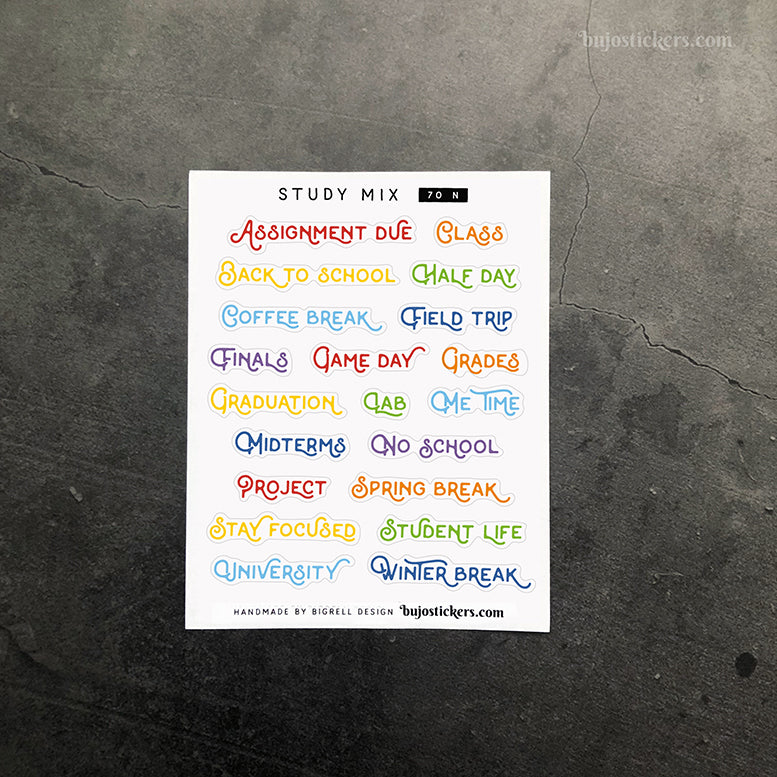 bujostickers.com
STUDY MIX 70 N
ASSIGNMENT DUE CLASS
BACK TO SCHOOL HALF DAY
COFFEE BREAK FIELD TRIP
FINALS GAME DAY GRADES
GRADUATION LAB ME TIME
MIDTERMS NO SCHOOL
PROJECT SPRING BREAK
STAY FOCUSED STUDENT LIFE
UNIVERSITY WINTER BREAK
HANDMADE BY BIGRELL DESIGN bujostickers.com